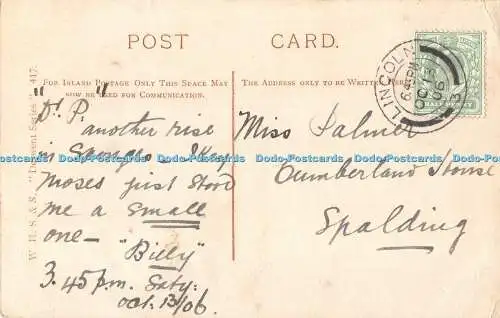 POST CARD.
FOR INLAND POSTAGE ONLY THIS SPACE MAY
NOW BE USED FOR COMMUNICATION.
THE ADDRESS ONLY TO BE WRITTEN HERE.
W. H. S. & S. 417.
"Dr. P."
another rise
in
Moses just stood
me a small
one— "Billy"
3.45 p.m. Saty:
Oct. 13/06
Miss Palmer
Cumberland House
Spalding
LINCOLN
6.45 PM
OC 13
06
HALFPENNY
Dodo-Postcards Dodo-Postcards Dodo-Postcards Dodo-Postcards Dodo-Postcards